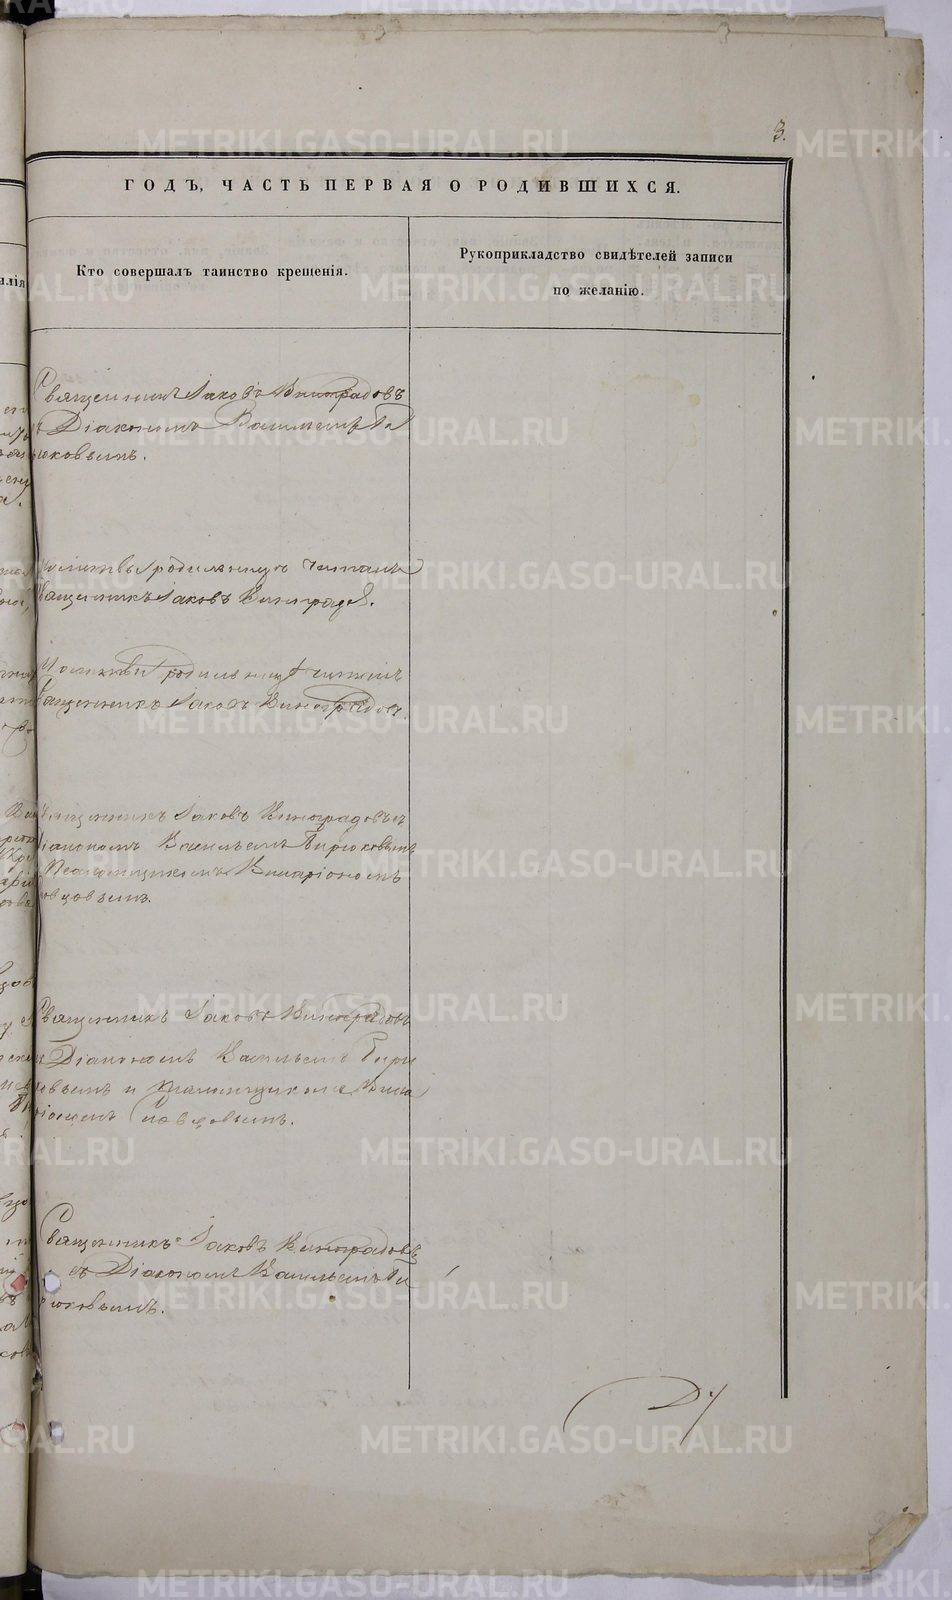 3.
ГОДЪ, ЧАСТЬ ПЕРВАЯ О РОДИВШИХСЯ.
Кто совершалъ таинство крещенія.
Рукоприкладство свидѣтелей записи
по желанію.
Священникъ Іаковъ Виноградовъ
съ Діакономъ Васильемъ Би
рюковымъ.
Молитвы родильницѣ читалъ
Священникъ Іаковъ Виноградовъ.
Молитвы родильницѣ читалъ
Священникъ Іаковъ Виноградовъ.
Священникъ Іаковъ Виноградовъ съ
Діакономъ Васильемъ Бирюковымъ
и Псаломщикомъ Иларіономъ
Священникъ Іаковъ Виноградовъ
съ Діакономъ Васильемъ Бирю
ковымъ и псаломщикомъ Ила
ріономъ
Священникъ Іаковъ Виноградовъ
съ Діакономъ Васильемъ Би
рюковымъ.
METRIKI.GASO-URAL.RU